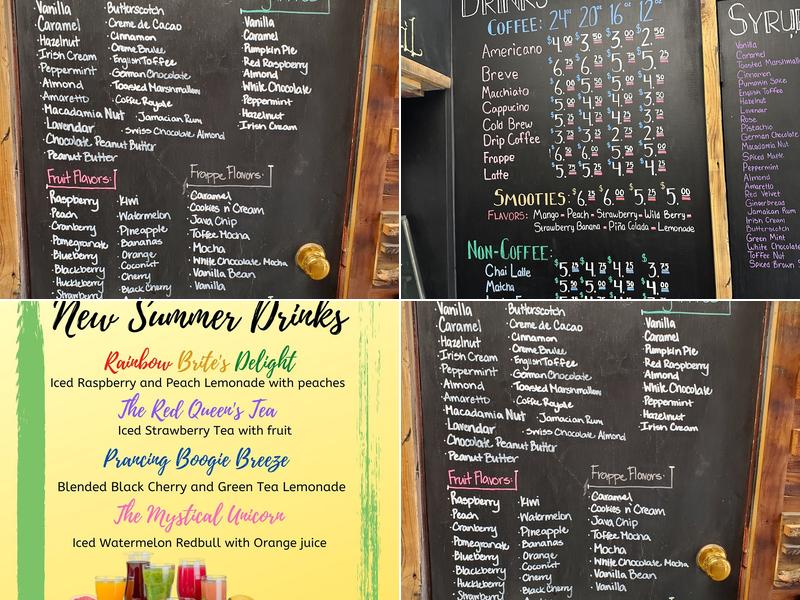 Vanilla
Caramel
Hazelnut
Irish Cream
Peppermint
Almond
Amaretto
Macadamia Nut
Lavendar
Chocolate Peanut Butter
Peanut Butter
Butterscotch
Creme de Cacao
Cinnamon
Creme Brulee
English Toffee
German Chocolate
Toasted Marshmallow
Coffee Royale
Jamacian Rum
Swiss Chocolate Almond
Vanilla
Caramel
Pumpkin Pie
Red Raspberry
Almond
White Chocolate
Peppermint
Hazelnut
Irish Cream
Fruit Flavors:
Raspberry
Peach
Cranberry
Pomegranate
Blueberry
Blackberry
Huckleberry
Strawberry
Kiwi
Watermelon
Pineapple
Bananas
Orange
Coconut
Cherry
Black Cherry
Frappe Flavors:
Caramel
Cookies n' Cream
Java Chip
Toffee Mocha
Mocha
White Chocolate Mocha
Vanilla Bean
Vanilla
DRINKS
COFFEE: 24oz 20oz 16oz 12oz
Americano $4.00 $3.50 $3.00 $2.50
Breve
Macchiato
Cappucino
Cold Brew
Drip Coffee
Frappe
Latte
SMOOTIES: $6.75 $6.00 $5.25 $5.00
FLAVORS: Mango - Peach - Strawberry - Wild Berry -
Strawberry Banana - Piña Colada - Lemonade
NON-COFFEE:
Chai Latte
Matcha
SYRUP
Vanilla
Caramel
Toasted Marshmall
Cinnamon
Pumpkin Spice
English Toffee
Hazelnut
Lavender
Rose
Pistachio
German Chocolate
Macadamia Nut
Spiced Maple
Peppermint
Almond
Amaretto
Red Velvet
Gingerbread
Jamaican Rum
Irish Cream
Butterscotch
Green Mint
White Chocolate
Toffee Nut
Spiced Brown S
New Summer Drinks
Rainbow Brite's Delight
Iced Raspberry and Peach Lemonade with peaches
The Red Queen's Tea
Iced Strawberry Tea with fruit
Prancing Boogie Breeze
Blended Black Cherry and Green Tea Lemonade
The Mystical Unicorn
Iced Watermelon Redbull with Orange juice
Vanilla
Caramel
Hazelnut
Irish Cream
Peppermint
Almond
Amaretto
Macadamia Nut
Lavendar
Chocolate Peanut Butter
Peanut Butter
Butterscotch
Creme de Cacao
Cinnamon
Creme Brulee
English Toffee
German Chocolate
Toasted Marshmallow
Coffee Royale
Jamacian Rum
Swiss Chocolate Almond
Vanilla
Caramel
Pumpkin Pie
Red Raspberry
Almond
White Chocolate
Peppermint
Hazelnut
Irish Cream
Fruit Flavors:
Raspberry
Peach
Cranberry
Pomegranate
Blueberry
Blackberry
Huckleberry
Kiwi
Watermelon
Pineapple
Bananas
Orange
Coconut
Cherry
Black Cherry
Frappe Flavors:
Caramel
Cookies n' Cream
Java Chip
Toffee Mocha
Mocha
White Chocolate Mocha
Vanilla Bean
Vanilla